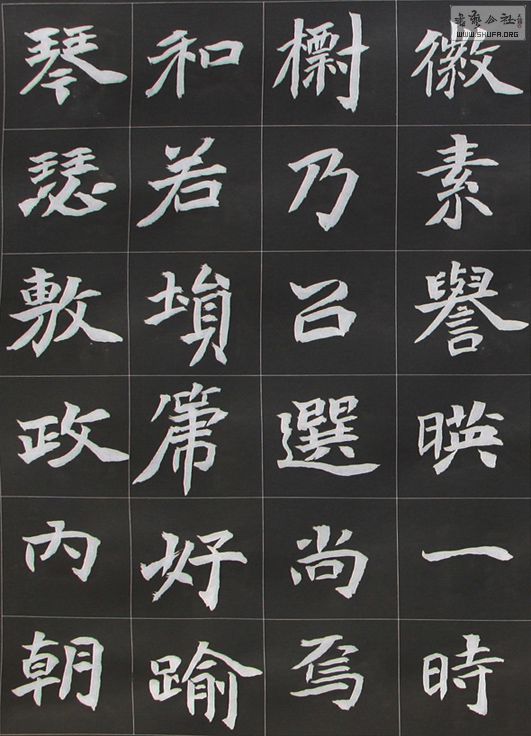 徽素譽暎一時
乃召選尚焉
和若塤篪好踰
琴瑟敷政內朝
書藝公社
WWW.SHUFA.ORG